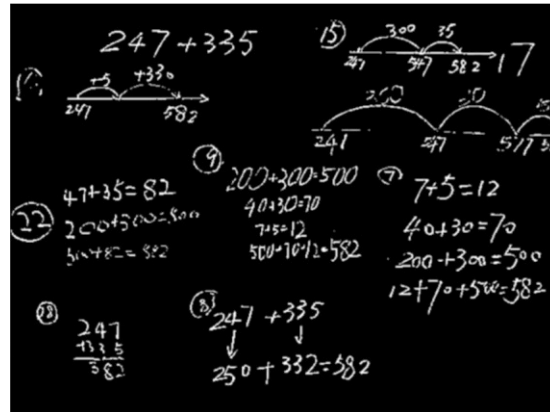 247+335
15
300 35
247 547 582
17
+5 +330
247 582
247 577
22
47+35=82
9
200+300=500
40+30=70
7+5=12
500+70+12=582
7+5=12
40+30=70
200+300=500
12+70+500=582
28
247
+335
582
8
247+335
250+332=582